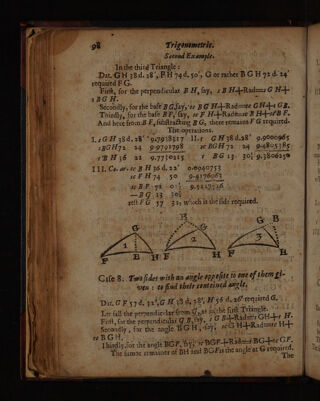 98 Trigonometrie.
Second Example.
In the third Triangle:
Dat. G H 38 d. 28', F H 74 d. 50', G or rather B G H 72 d. 24'
required F G.
First, for the perpendicular B H, say, s B H+Radius=s G H+
s B G H.
Secondly, for the base B G, say, sc B G H+Radius=t GH+t GB.
Thirdly, for the base B F, say, sc F H+Radius=t B H+sc B F.
And hence from B F, substracting B G, there remains F G required.
The operations.
I. s G H 38 d. 28' 9.7938317 II. t G H 38 d. 28' 9.9000865
s BGH 72 24 9.9791798 sc BGH 72 24 9.4805385
s B H 36 22 9.7730115 t BG 13 30 9.3806250
III. Co. ar. sc B H 36 d. 22' 0.0940753
sc F H 74 50 9.4176063
sc B F 72 0
—B G 13 30
rest F G 57 32; which is the side required.
B B G B
G G
1 2 3
F B H F H F H
Case 8. Two sides with an angle opposite to one of them gi-
ven: to find their contained angle.
Dat. G F 57 d. 32', G H 38 d. 28', H 56 d. 26' required G.
Let fall the perpendicular from G, as in the first Triangle.
First, for the perpendicular G B, say, s G B+Radius=s GH+s H.
Secondly, for the angle B G H, say, sc G H+Radius=t H+
tc B G H.
Thirdly, for the angle B G F, say, sc BGF+Radius=t BG+tc G F.
The summe or remainer of BGH and BGF is the angle at G required.
The